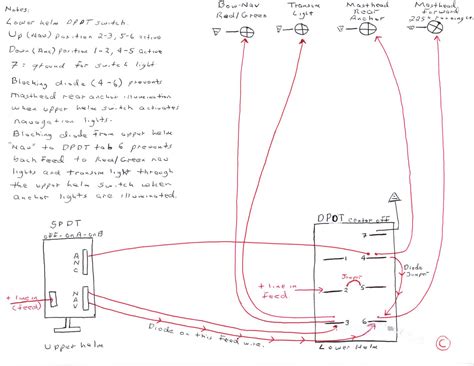 Notes:
Lower helm DPDT switch.
Up (Nav) position 2-3, 5-6 active
Down (Anc) position 1-2, 4-5 active
7 = ground for switch light
Blocking diode (4-6) prevents
Masthead rear anchor illumination
when upper helm switch activates
navagation lights.
Blocking diode from upper helm
"Nav" to DPDT tab 6 prevents
back feed to Red/Green nav
lights and transom light through
the upper helm switch when
anchor lights are illuminated.
Bow-Nav
Red/Green
Transom
Light
Masthead
Rear
Anchor
Masthead
Forward
225° running.
SPDT
off-onA-onB
ANC
NAV
+ line in
(feed)
Upper helm
Diode on this feed wire.
DPDT center off
7
1
4
Diode
Jumper
Jumper
+ line in
feed
2
5
3
6
Lower Helm
C